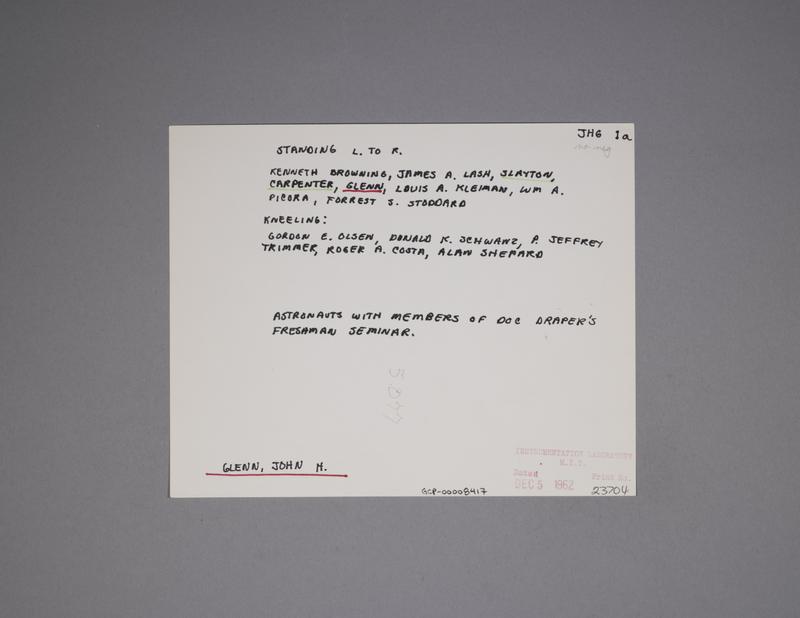 JHG 1a
no neg
STANDING L. TO R.
KENNETH BROWNING, JAMES A. LASH, SLAYTON,
CARPENTER, GLENN, LOUIS A. KLEIMAN, WM A.
PICORA, FORREST S. STODDARD
KNEELING:
GORDON E. OLSEN, DONALD K. SCHWANZ, P. JEFFREY
TRIMMER, ROGER A. COSTA, ALAN SHEPARD
ASTRONAUTS WITH MEMBERS OF DOC DRAPER'S
FRESHMAN SEMINAR.
GLENN, JOHN H.
INSTRUMENTATION LABORATORY
M.I.T.
Dated Print No.
DEC 5 1962 23704
GCP-00008417